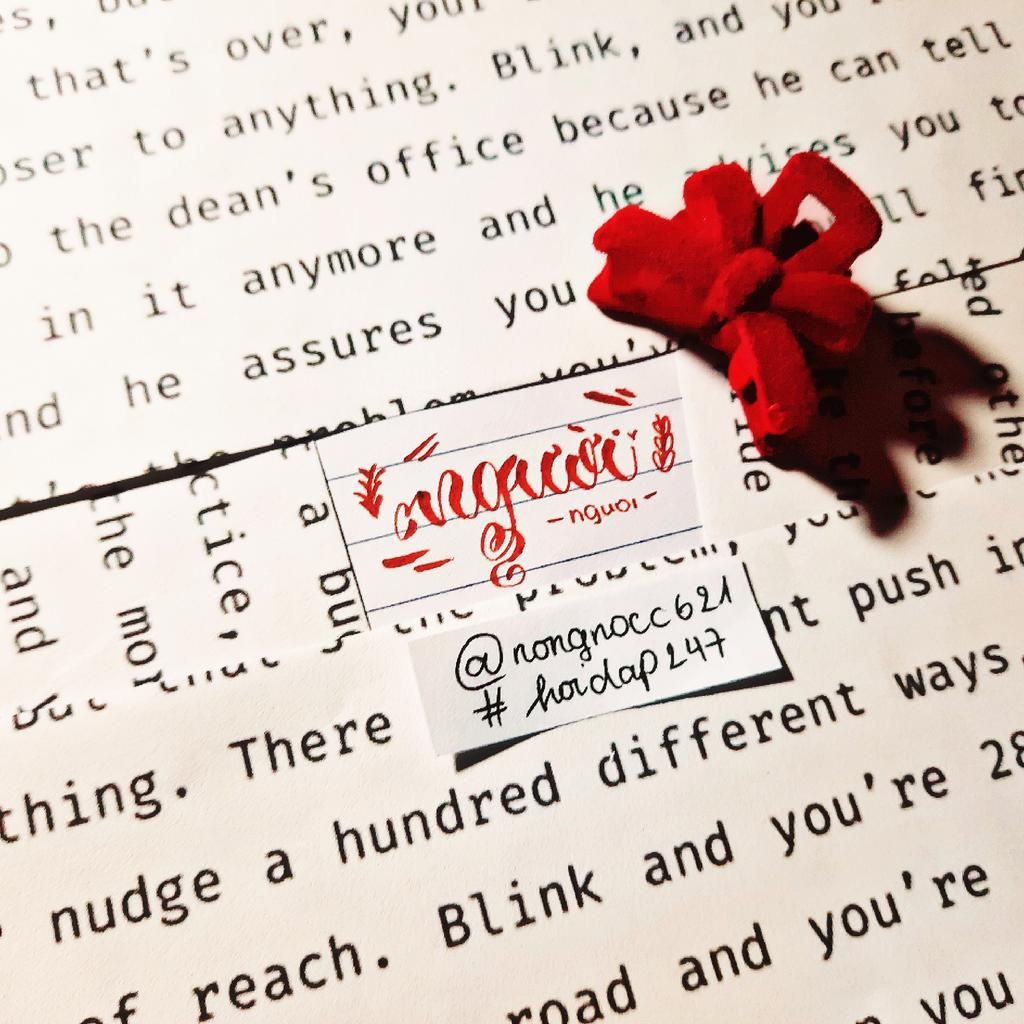 that's over, your
to anything. Blink, and you
the dean's office because he can tell
in it anymore and he advises you to
he assures you
problem you've
felt
the
ctice,
a
and
the
before
người
- nguoi -
@nongnocc621
# hoidap247
the problem, you
push in
thing. There
nudge a hundred different ways.
of reach. Blink and you're 28
road and you're
you